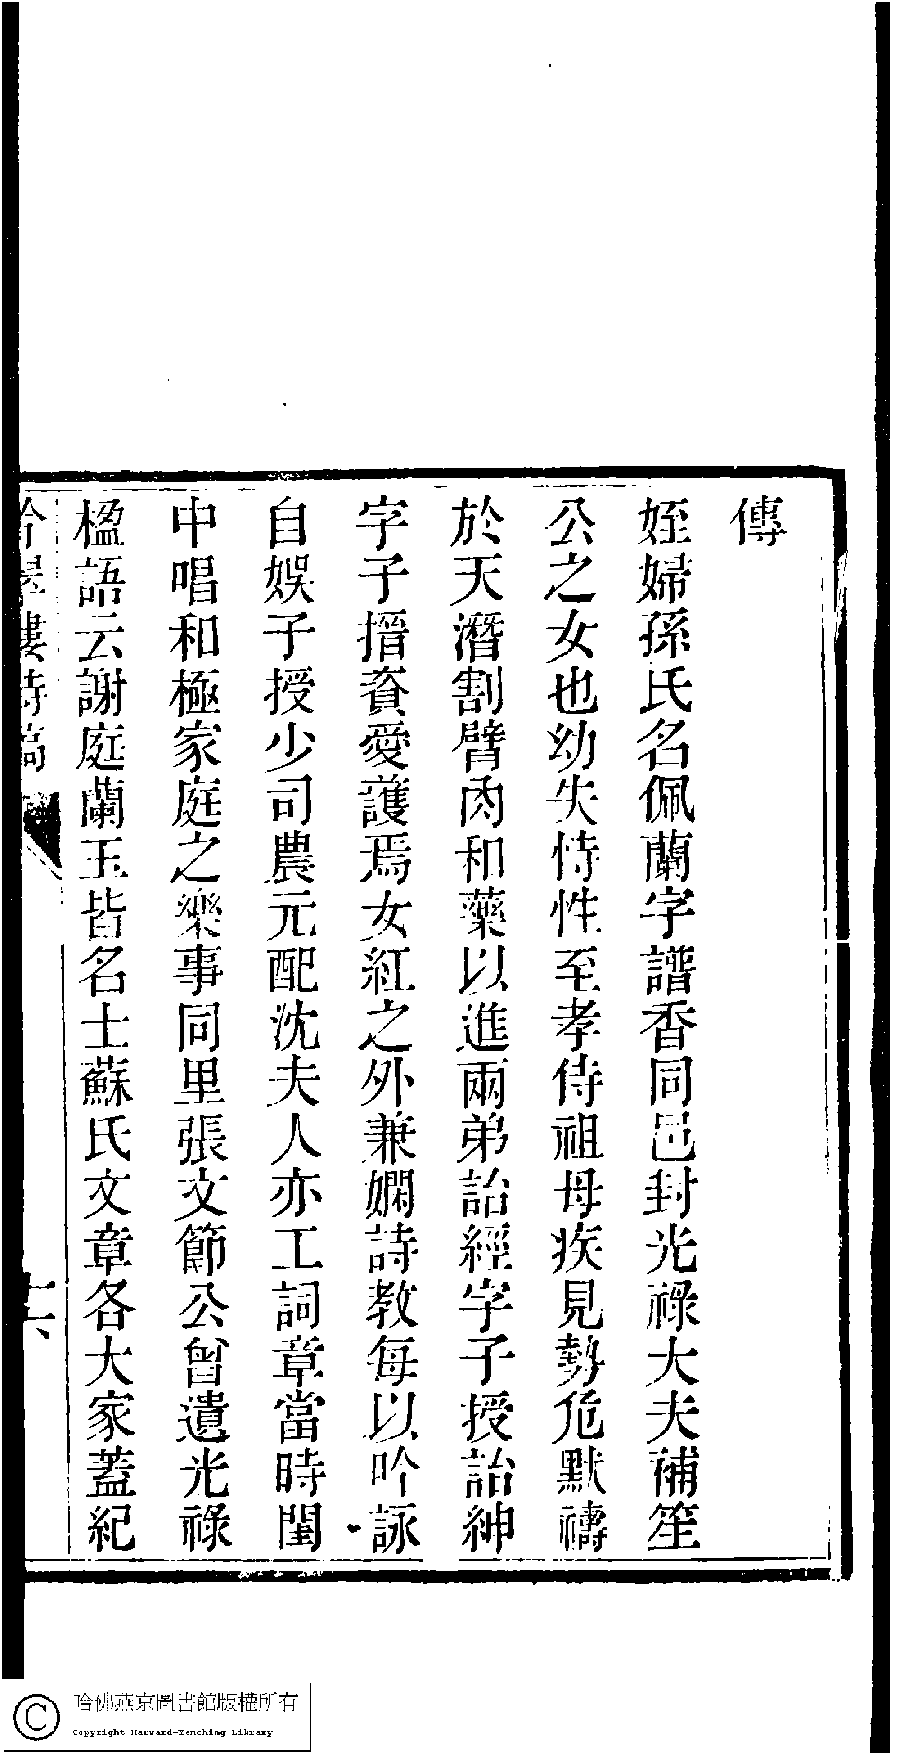 傳
姪婦孫氏名佩蘭字譜香同邑封光祿大夫補笙
公之女也幼失恃性至孝侍祖母疾見勢危默禱
於天潛割臂肉和藥以進兩弟詒經字子授詒紳
字子搢資愛護焉女紅之外兼嫻詩教每以吟詠
自娛子授少司農元配沈夫人亦工詞章當時閨
中唱和極家庭之樂事同里張文節公曾遺光祿
楹語云謝庭蘭玉皆名士蘇氏文章各大家蓋紀
樓詩稿
哈佛燕京圖書館版權所有
Copyright Harvard-Yenching Library